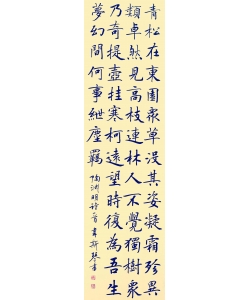 青松在東園眾草沒其姿凝霜殄異
類卓然見高枝連林人不覺獨樹眾
乃奇提壺挂寒柯遠望時復為吾生
夢幻間何事紲塵羈
陶淵明詩一首 韋斯琴書